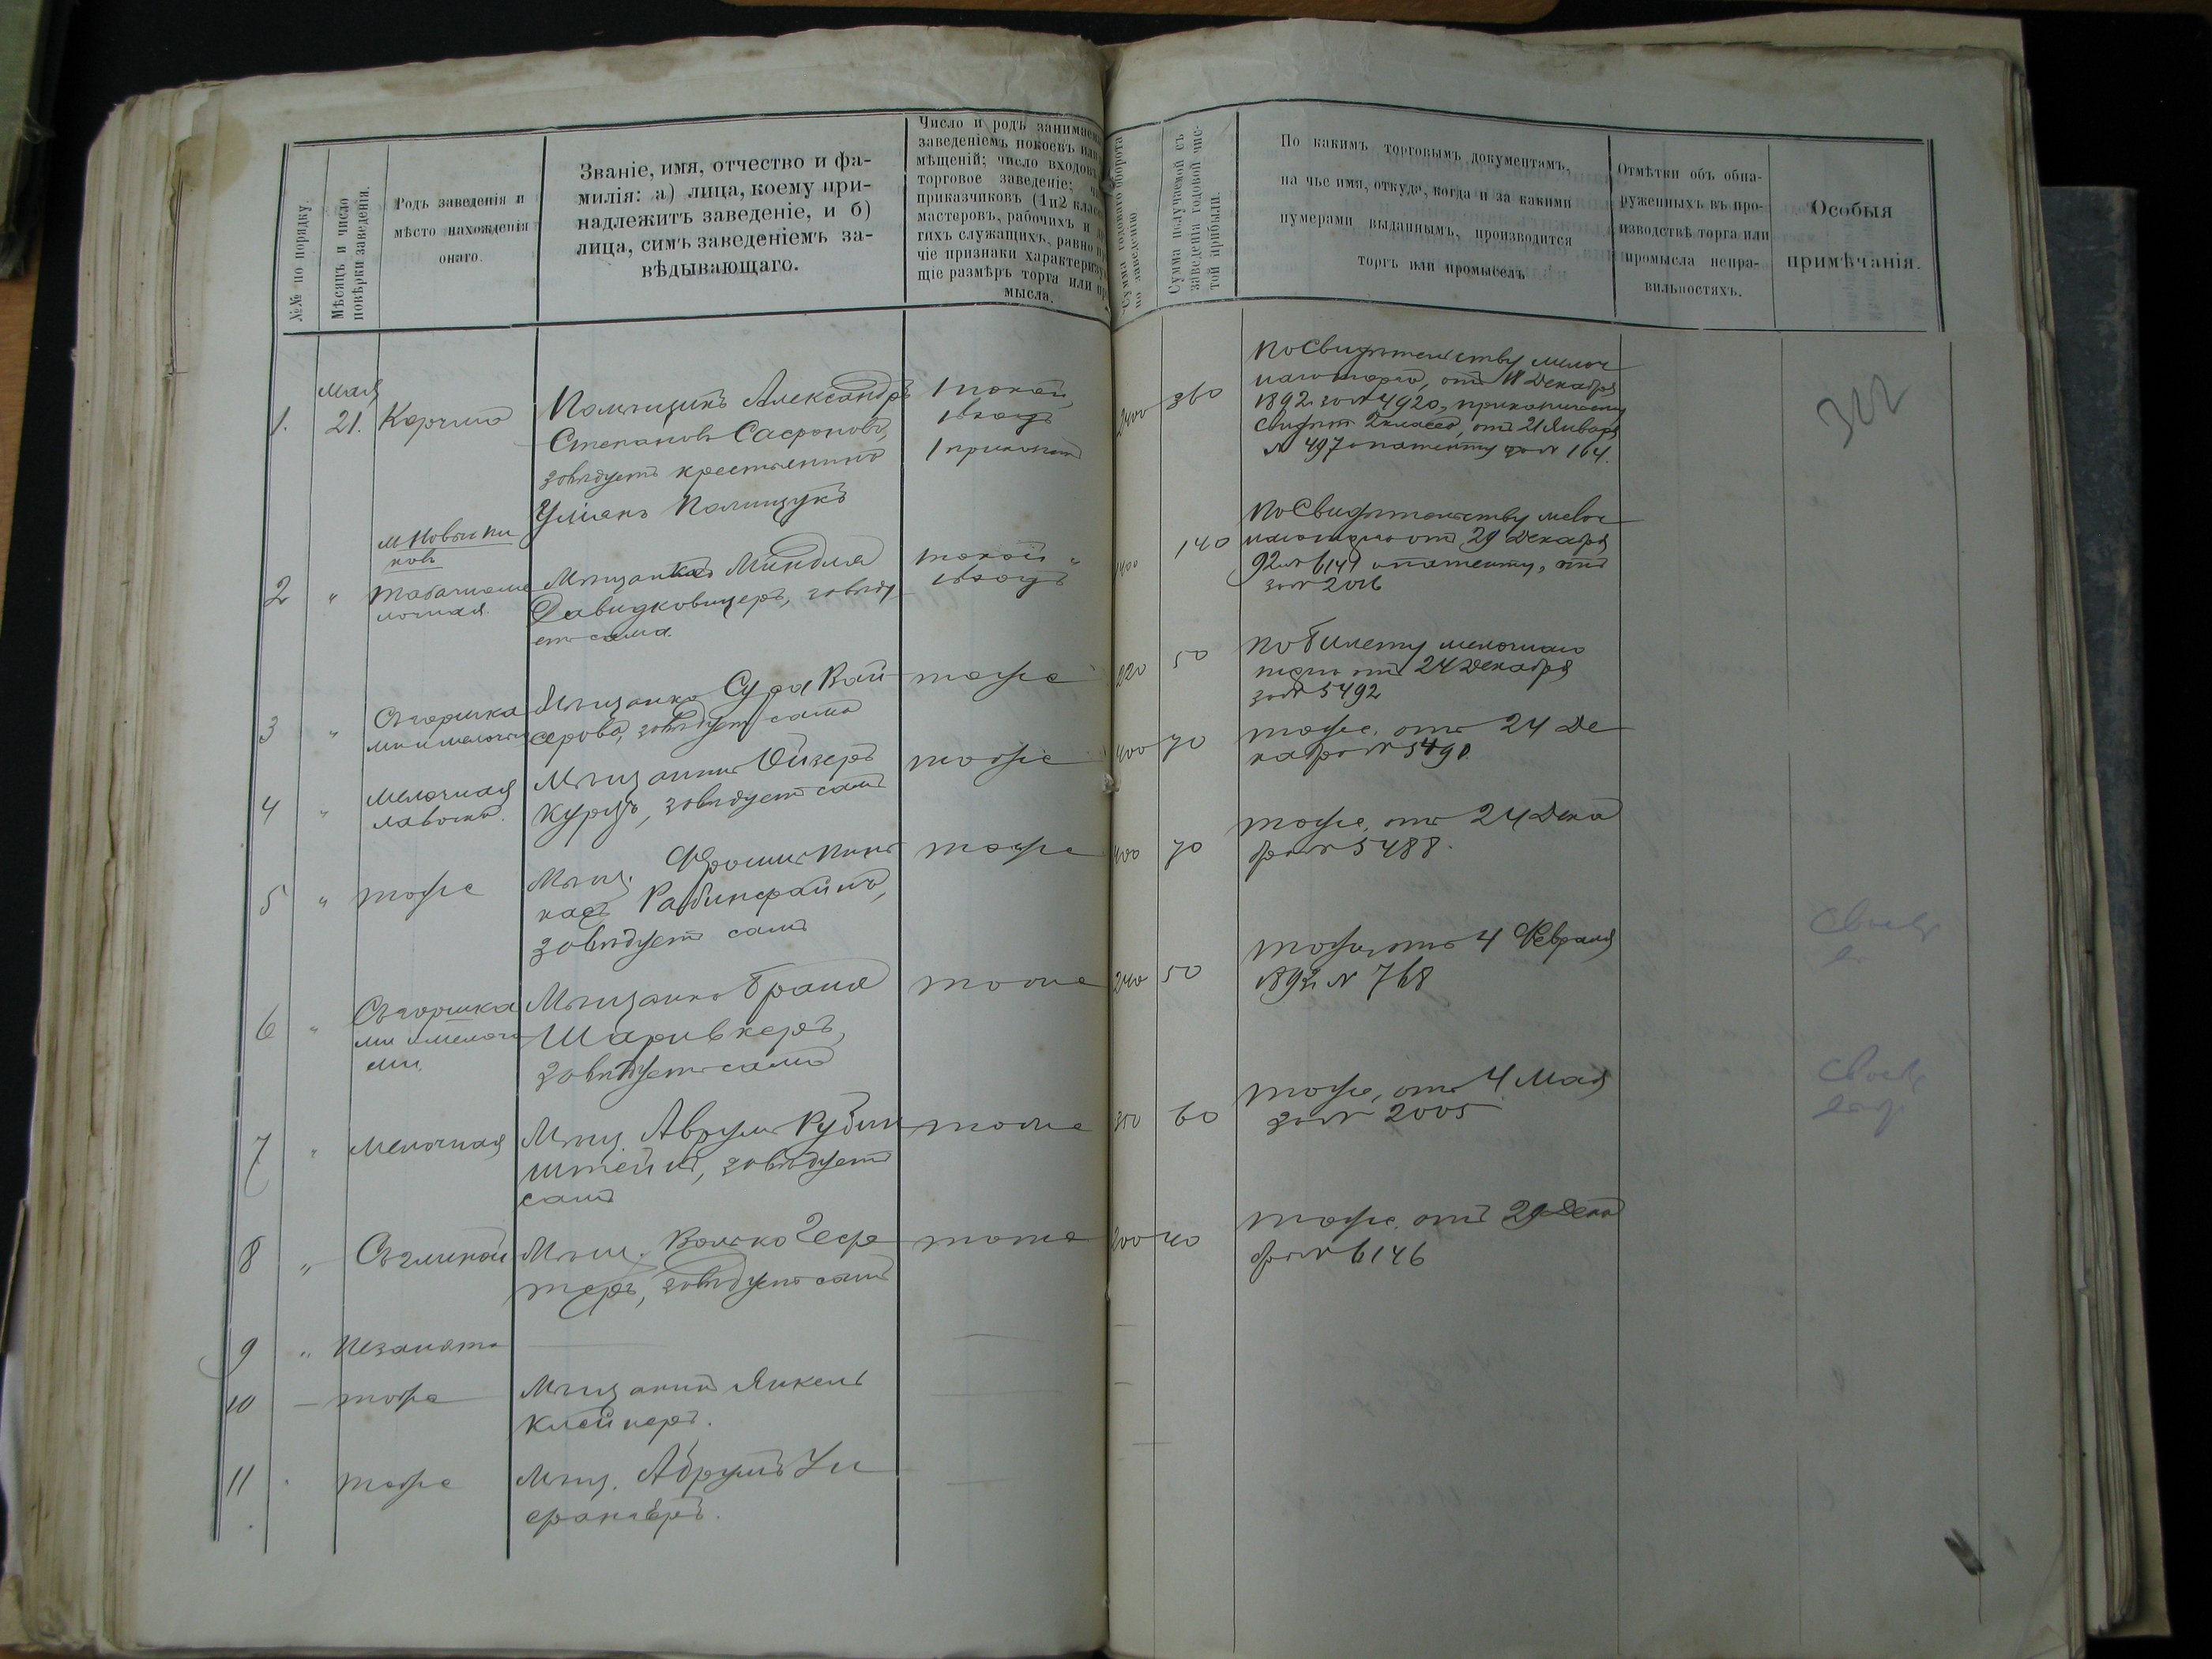 №№ по порядку.
Мѣсяцъ и число повѣрки заведенія.
Родъ заведенія и
мѣсто нахожденія
онаго.
Званіе, имя, отчество и фа-
милія: а) лица, коему при-
надлежитъ заведеніе, и б)
лица, симъ заведеніемъ за-
вѣдывающаго.
Число и родъ занимаем
заведеніемъ покоевъ или
мѣщеній; число входов
торговое заведеніе;
приказчиковъ (1 и 2 класс
мастеровъ, рабочихъ и д
гихъ служащихъ, равно
чіе признаки характериз
щіе размѣръ торга или
мысла.
Сумма годоваго оборота
по заведенію.
Сумма получаемой съ
заведенія годовой чис-
той прибыли.
По какимъ торговымъ документамъ,
на чье имя, откуда, когда и за какими
нумерами выданнымъ, производится
торгъ или промыселъ
Отмѣтки объ обна-
руженныхъ въ про-
изводствѣ торга или
промысла непра-
вильностяхъ.
Особыя
примѣчанія.
мая
1. 21. Корчма
Помѣщикъ Александръ
Степановъ Сафоновъ,
завѣдуетъ крестьянинъ
Полищукъ
1 покой,
1 входъ
1 приказч
2400 360
По свидѣтельству мелоч
наго торга, отъ 18 Декабря
1892 за № 4920, приказчичьему
свидѣт 2 класса, отъ 21 Января
№ 497 и патенту за № 164.
312
2 "
Мѣщанка Миндля
Давидковицеръ, завѣду
етъ сама.
1 покой "
1 входъ
140
По Свидѣтельству мелоч
наго торга отъ 29 Декабря
92 № 6147 и патенту,
за № 2016
3 "
Мѣщанка Сура Вай
серова, завѣдуетъ сама
тоже
220 50
По билету мелочнаго
торга отъ 24 Декабря
за № 5492
4 " Мелочная
лавочка.
Мѣщанинъ Ойзеръ
Курцъ, завѣдуетъ самъ
тоже
400 70
тоже, отъ 24 Де
кабря № 5490.
5 " тоже
Мѣщ. Фроимъ Пин
касъ Рабинфайнъ,
завѣдуетъ самъ
тоже
400 70
тоже, отъ 24 Декаб
бря № 5488.
6 " Съ горшка
ми и мелоча
ми.
Мѣщанка Браня
Шаривкеръ,
завѣдуетъ сама
тоже
240 50
тоже, отъ 4 Февраля
1892 № 768
7 " Мелочная
Мѣщ. Аврумъ Рубин
штейнъ, завѣдуетъ
самъ
тоже
350 60
тоже, отъ 4 Мая
за № 2005
8 " Съ глиной
Мѣщ. Волько
завѣдуетъ самъ
тоже
200 40
тоже, отъ 29 Дека
бря № 6146
9 " Не занята
10 — тоже
Мѣщанинъ Янкель
Клейнеръ.
11 " тоже
Мѣщ. Абрумъ